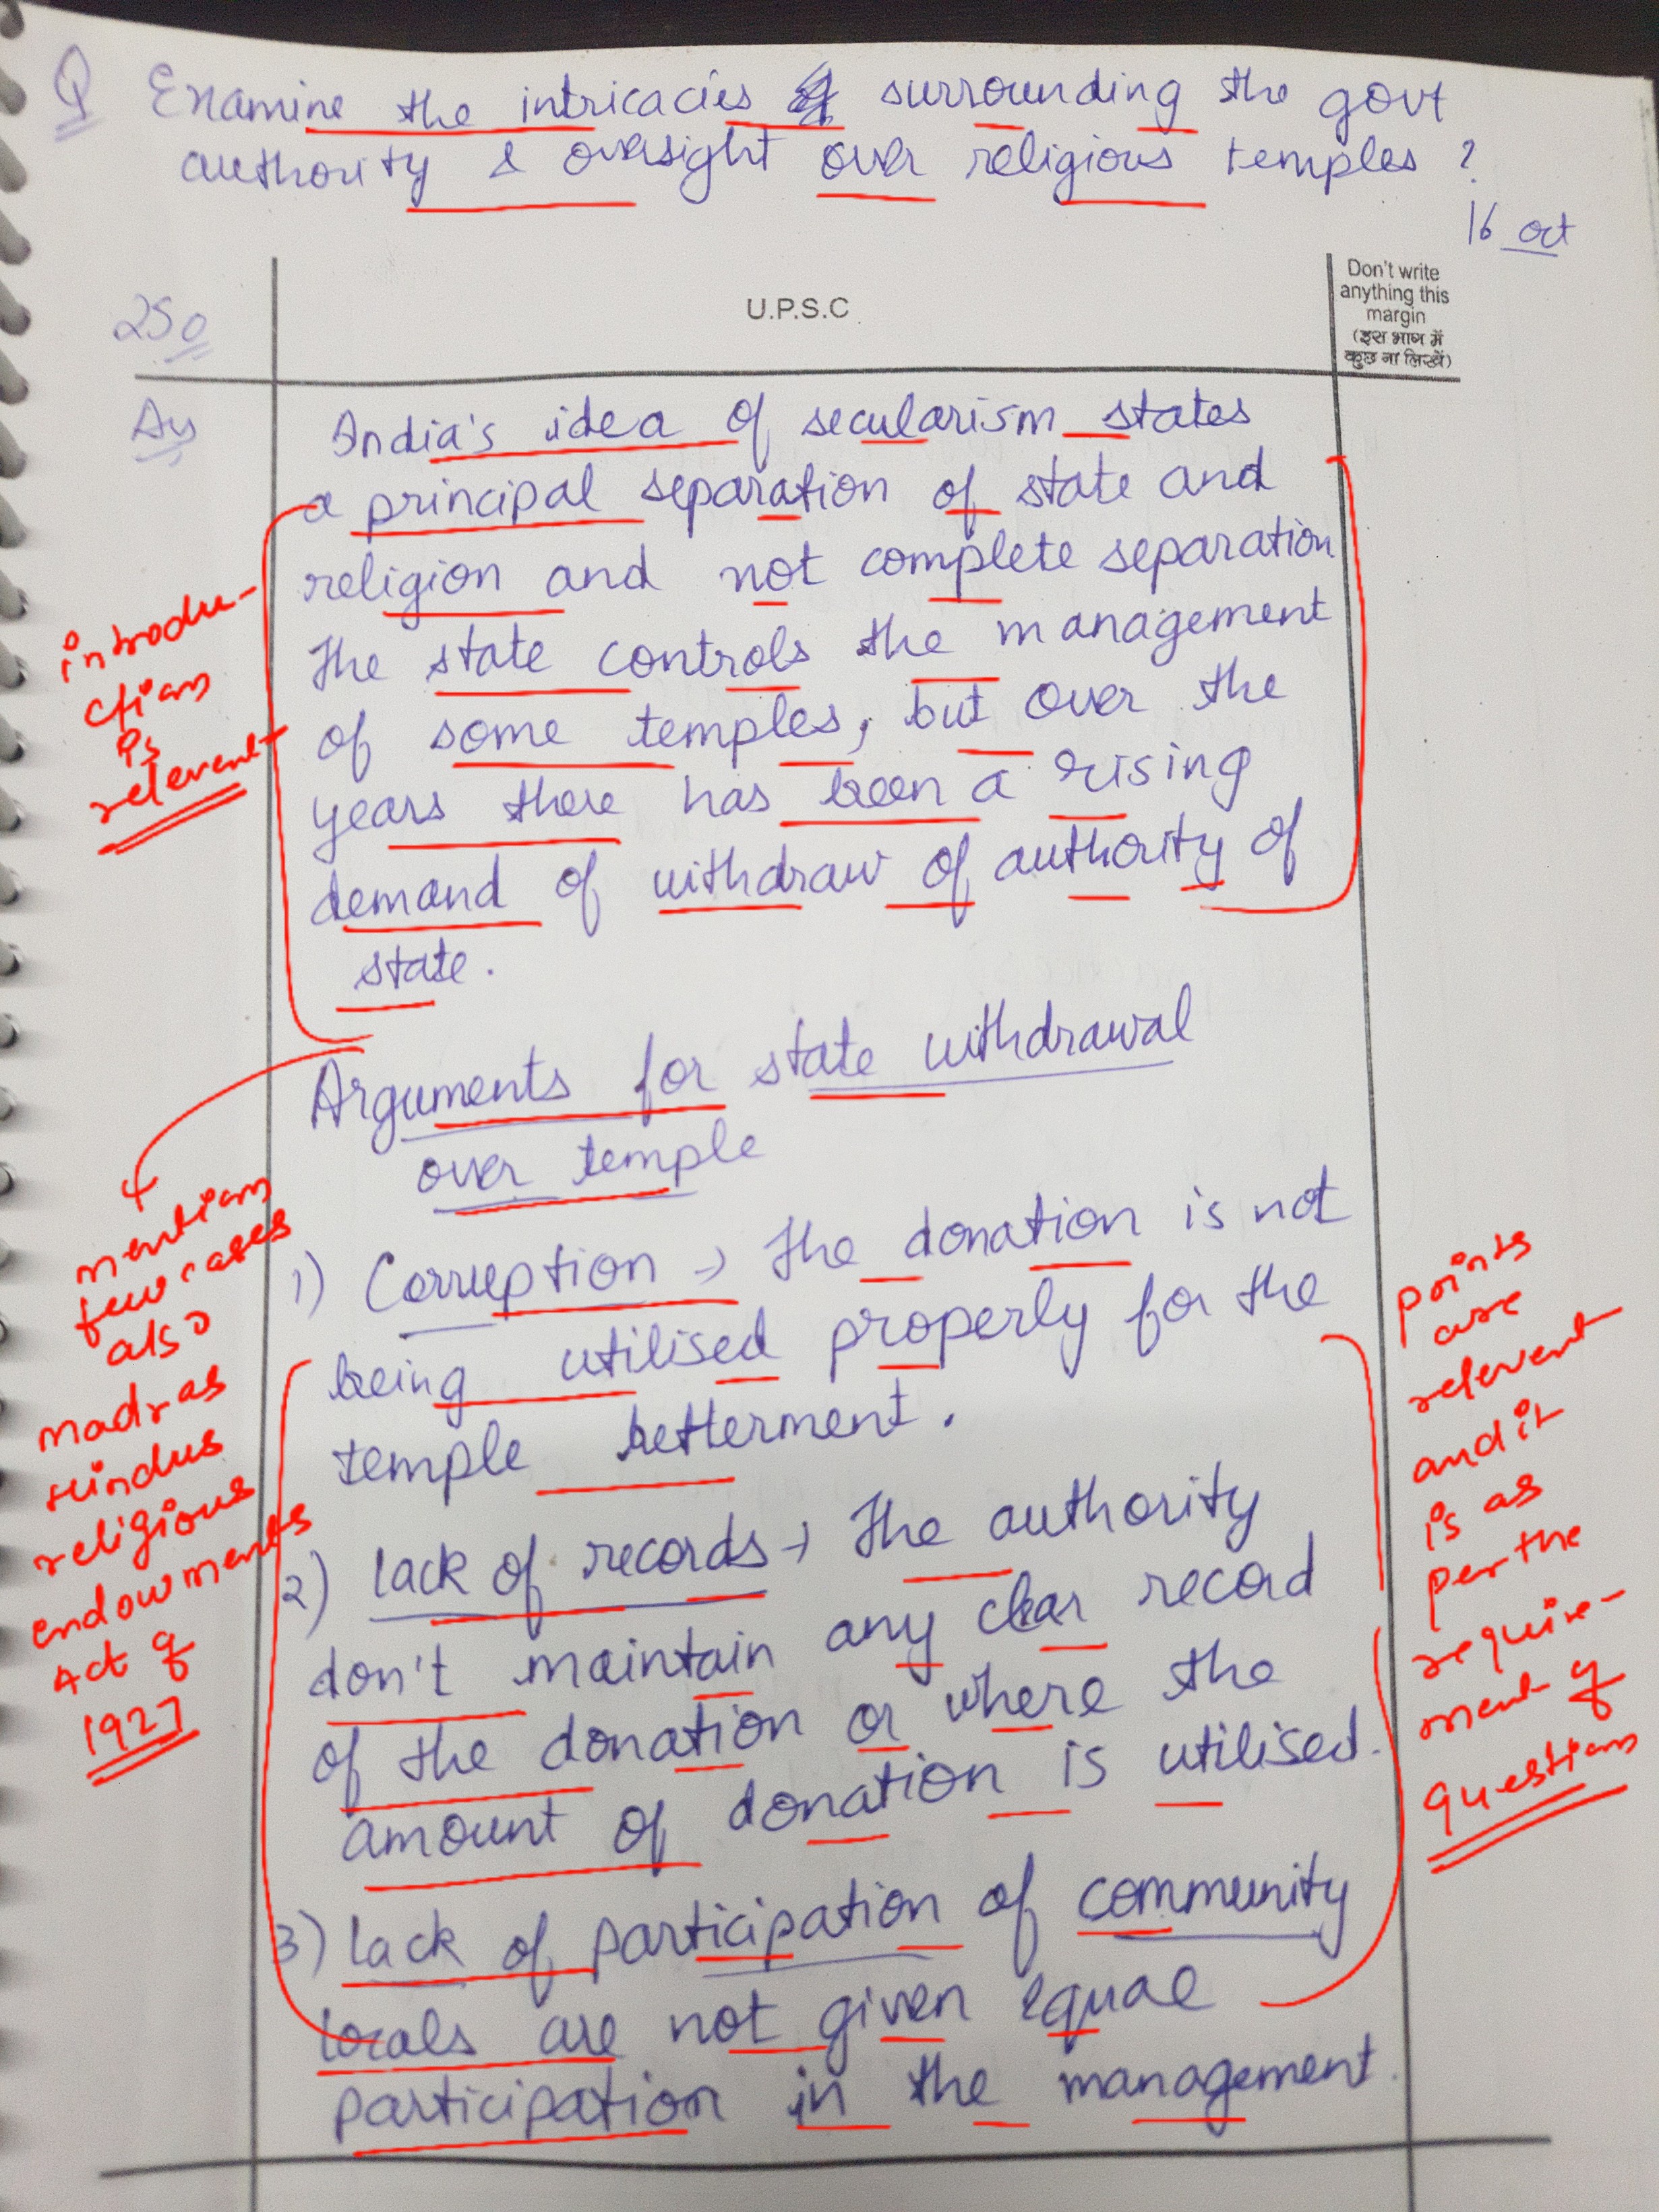 Q Examine the intricacies surrounding the govt
authority & oversight over religious temples ?
16 oct
250
U.P.S.C
Don't write
anything this
margin
(इस भाग में
कुछ ना लिखें)
Ans
India's idea of secularism states
a principal separation of state and
religion and not complete separation
The state controls the management
of some temples, but over the
years there has been a rising
demand of withdraw of authority of
state.
introdu-
ction
is
relevent
Arguments for state withdrawal
over temple
1) Corruption → The donation is not
being utilised properly for the
temple betterment.
2) lack of records → The authority
don't maintain any clear record
of the donation or where the
amount of donation is utilised.
3) lack of participation of community
locals are not given equal
participation in the management.
mention
few cases
also
madras
Hindus
religious
endowments
Act of
1927
points
are
relevent
and it
is as
per the
require-
ment of
question